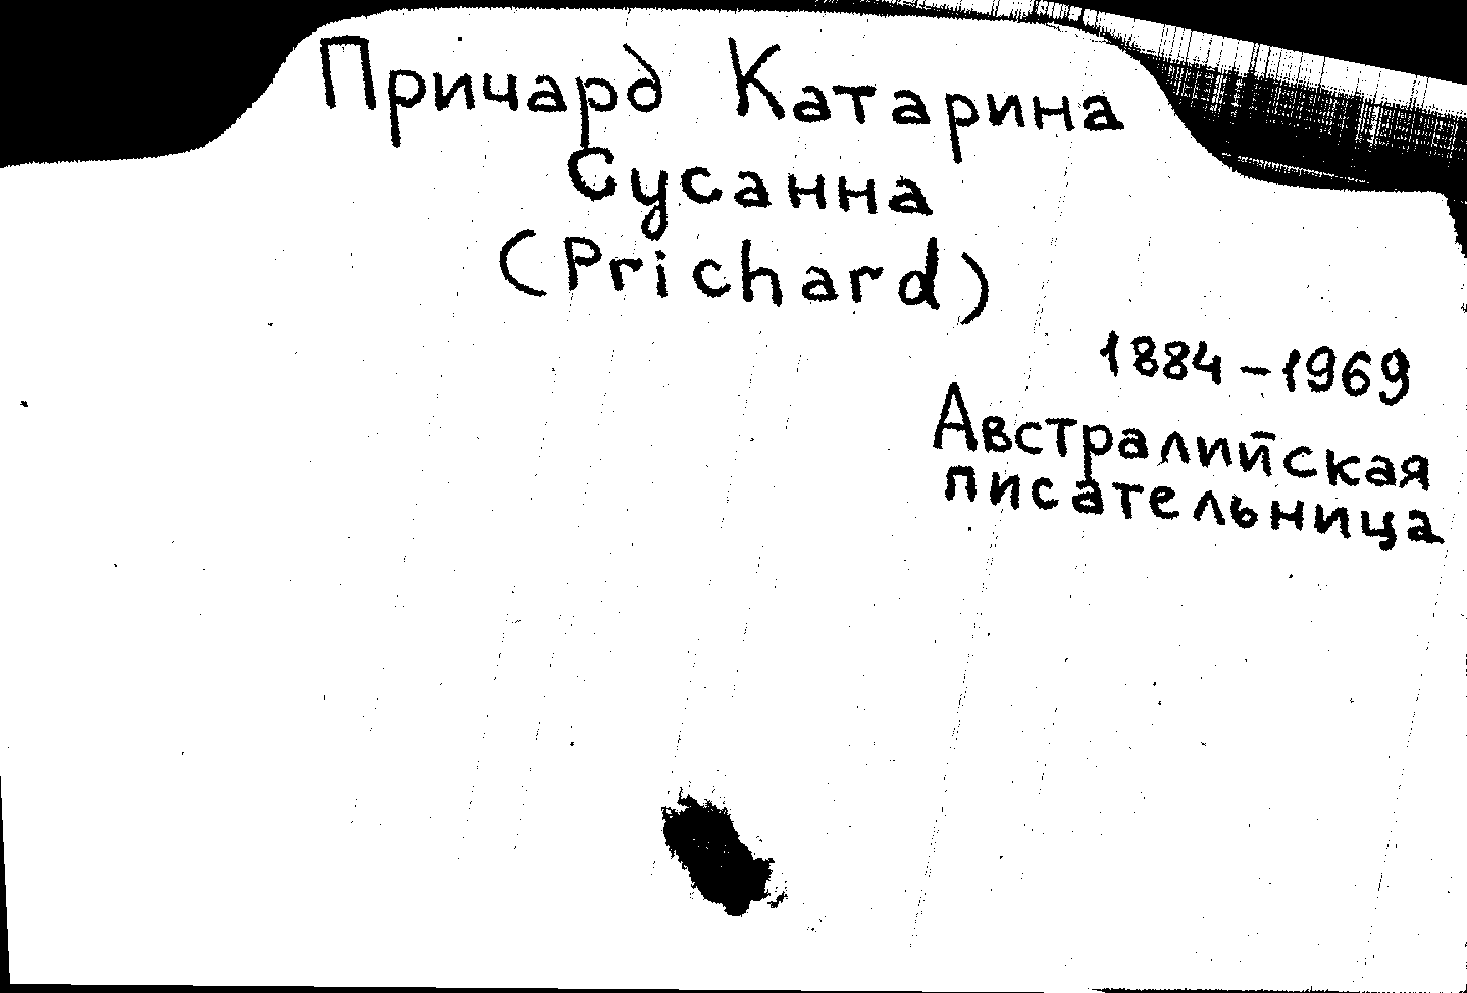 Причард Катарина
Сусанна
(Prichard)
1884-1969
Австралийская
писательница